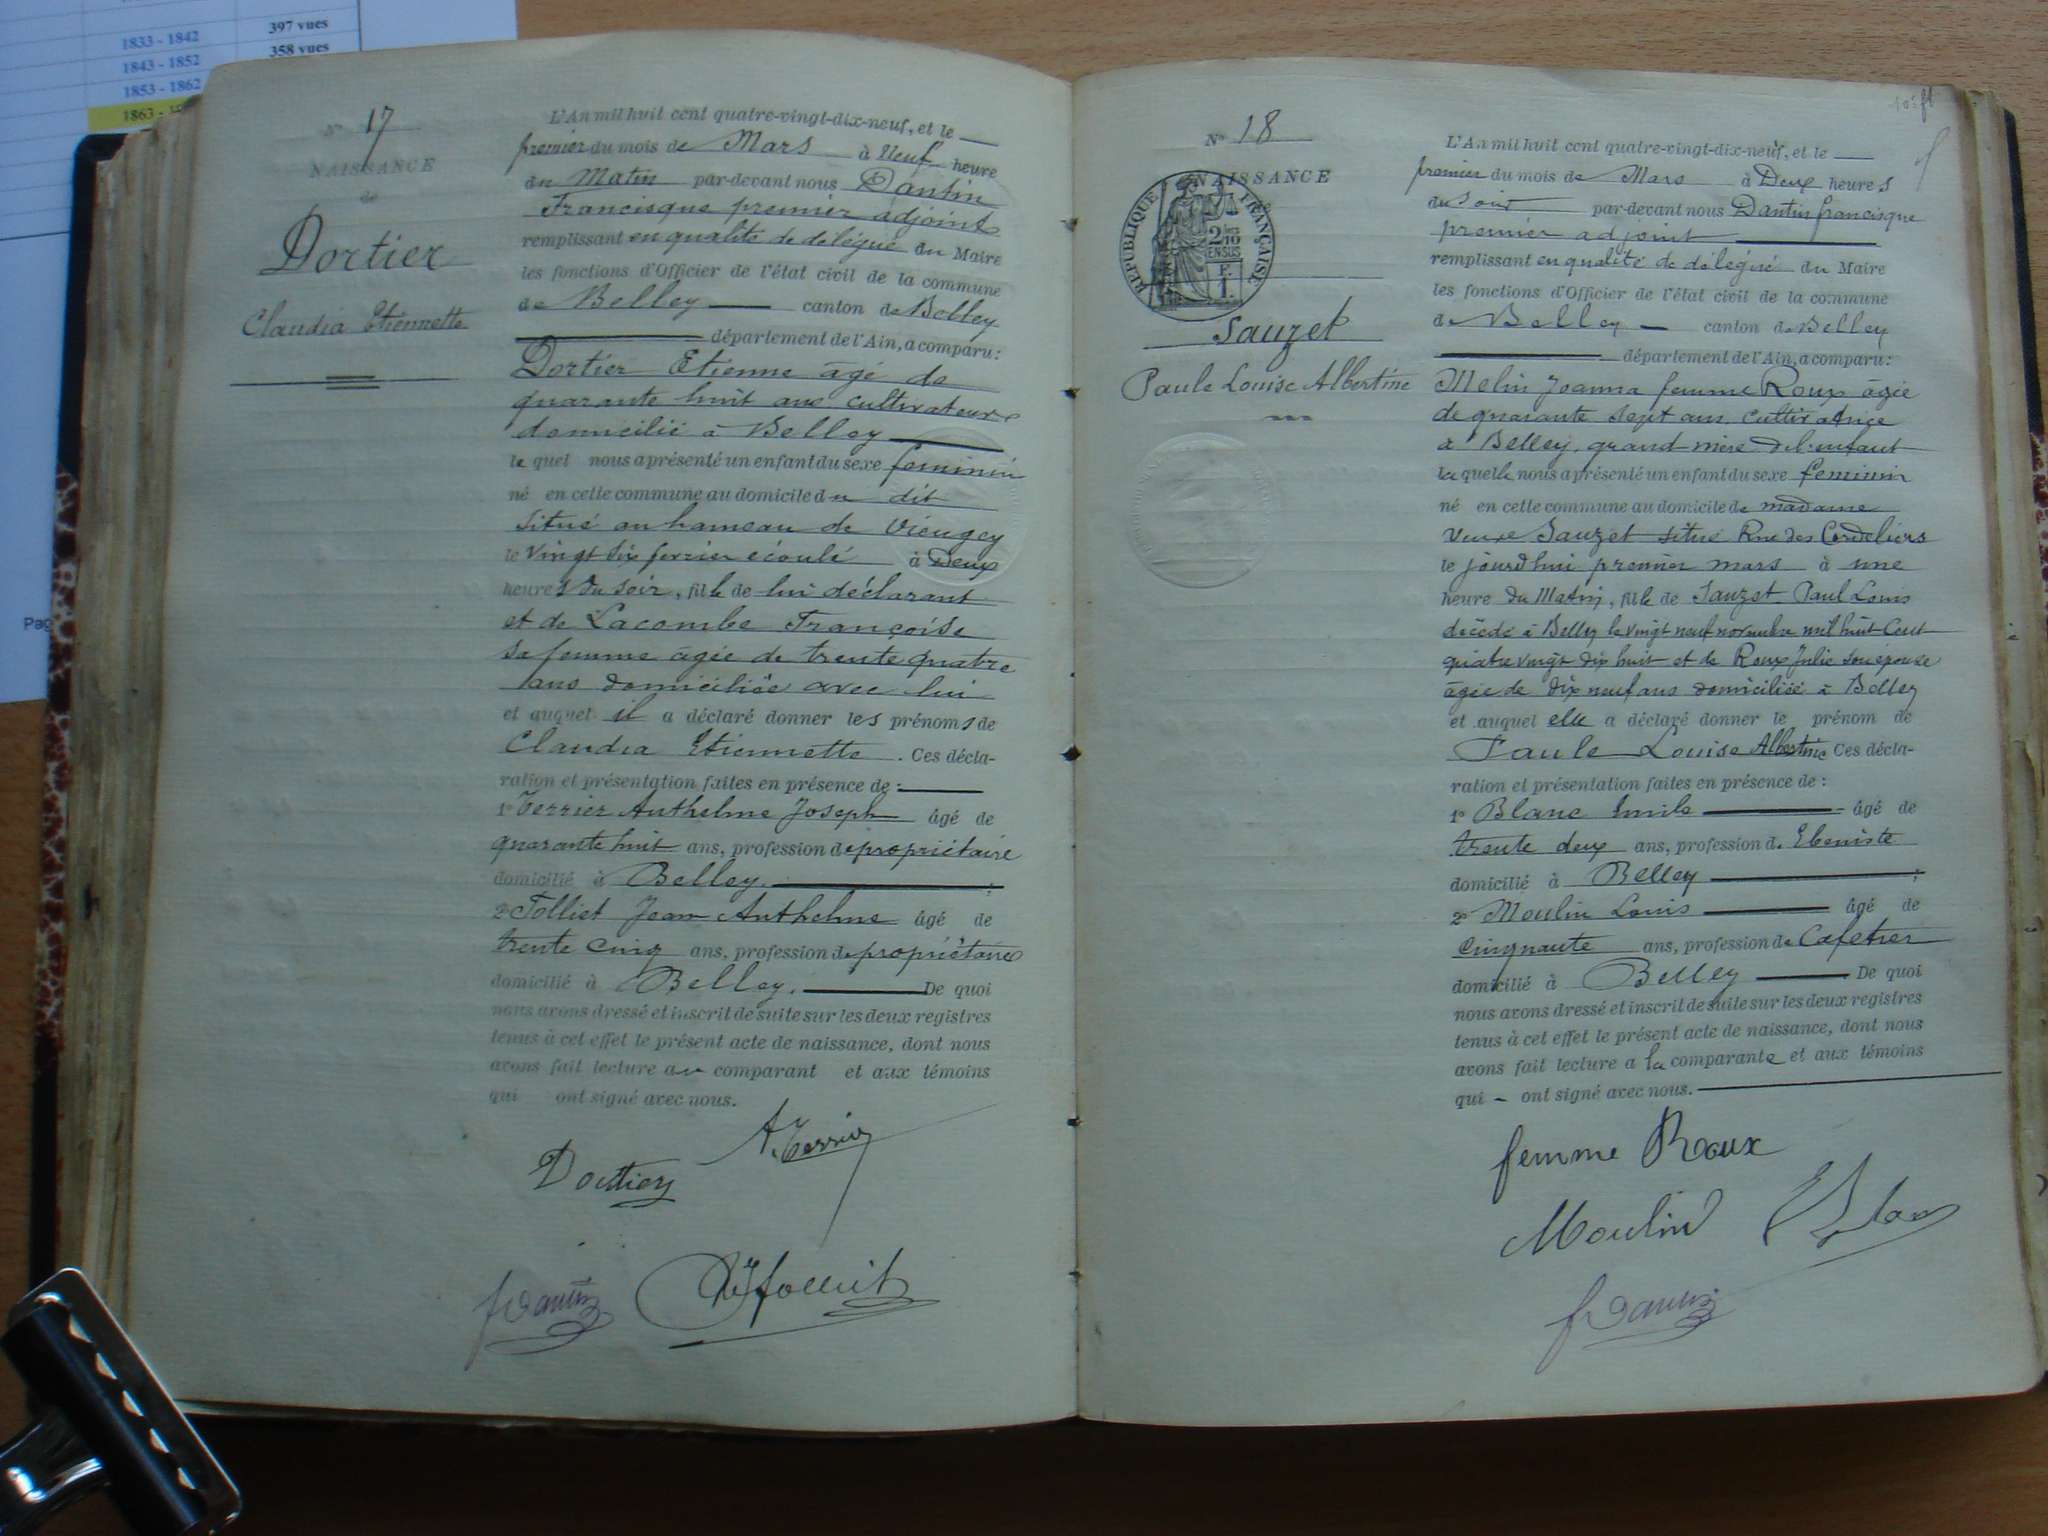 1833 - 1842 397 vues
1843 - 1852 358 vues
1853 - 1862
1863 -
Pag
N° 17
NAISSANCE
de
Dortier
Claudia Etiennette
L'An mil huit cent quatre-vingt-dix-neuf, et le
premier du mois de Mars à Neuf heure
du Matin par-devant nous Dantin
Francisque premier adjoint
remplissant en qualité de délégué du Maire
les fonctions d'Officier de l'état civil de la commune
de Belley canton de Belley
département de l'Ain, a comparu :
Dortier Etienne âgé de
quarante huit ans cultivateur
domicilié à Belley
lequel nous a présenté un enfant du sexe feminin
né en cette commune au domicile du dit
situé au hameau de Vieugey
le vingt six fevrier écoulé à Deux
heures du soir, fille de lui déclarant
et de Lacombe Françoise
sa femme âgée de trente quatre
ans domiciliée avec lui
et auquel il a déclaré donner les prénoms de
Claudia Etiennette. Ces décla-
ration et présentation faites en présence de :
1° Terrier Anthelme Joseph âgé de
quarante huit ans, profession de propriétaire
domicilié à Belley ;
2° Tolliet Jean Anthelme âgé de
trente cinq ans, profession de propriétaire
domicilié à Belley. De quoi
nous avons dressé et inscrit de suite sur les deux registres
tenus à cet effet le présent acte de naissance, dont nous
avons fait lecture au comparant et aux témoins
qui ont signé avec nous.
A. Terrier
Dortier
F Dantin
Tolliet
N° 18
NAISSANCE
RÉPUBLIQUE FRANÇAISE
2/10
EN SUS
F.
1.
Sauzet
Paule Louise Albertine
L'An mil huit cent quatre-vingt-dix-neuf, et le
premier du mois de Mars à Deux heures
du soir par-devant nous Dantin francisque
premier adjoint
remplissant en qualité de délégué du Maire
les fonctions d'Officier de l'état civil de la commune
de Belley canton de Belley
département de l'Ain, a comparu :
Melin Joanna femme Roux âgée
de quarante sept ans, cultivatrice
à Belley, grand mère de l'enfant
laquelle nous a présenté un enfant du sexe feminin
né en cette commune au domicile de madame
veuve Sauzet situé Rue des Cordeliers
le jourd'hui premier mars à une
heure du Matin, fille de Sauzet Paul Louis
décédé à Belley le vingt neuf novembre mil huit Cent
quatre vingt dix huit et de Roux Julie son épouse
âgée de dix neuf ans domiciliée à Belley
et auquel elle a déclaré donner le prénom de
Paule Louise Albertine Ces décla-
ration et présentation faites en présence de :
1° Blanc Emile âgé de
trente deux ans, profession d. Ebeniste
domicilié à Belley ;
2° Moulin Louis âgé de
Cinquante ans, profession de Cafetier
domicilié à Belley De quoi
nous avons dressé et inscrit de suite sur les deux registres
tenus à cet effet le présent acte de naissance, dont nous
avons fait lecture a la comparante et aux témoins
qui ont signé avec nous.
femme Roux
Moulin E Blanc
F Dantin